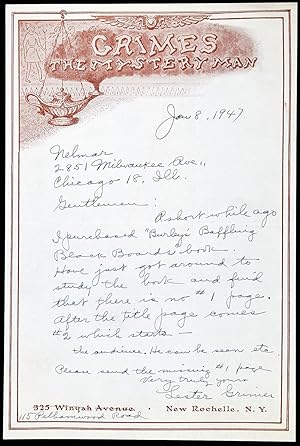 GRIMES
THE MYSTERY MAN
Jan 8, 1947
Nelmar
2851 Milwaukee Ave.,
Chicago 18, Ill.
Gentlemen:
A short while ago
I purchased "Burley's Baffling
Black Boards book
Have just got around to
study the book and find
that there is no #1 page.
After the title page comes
#2 which starts—
the audience. He can be seen etc.
Please send the missing #1 page
Very truly yours
Lester Grimes
325 Winyah Avenue. New Rochelle, N.Y.
115 Pelhamwood Road